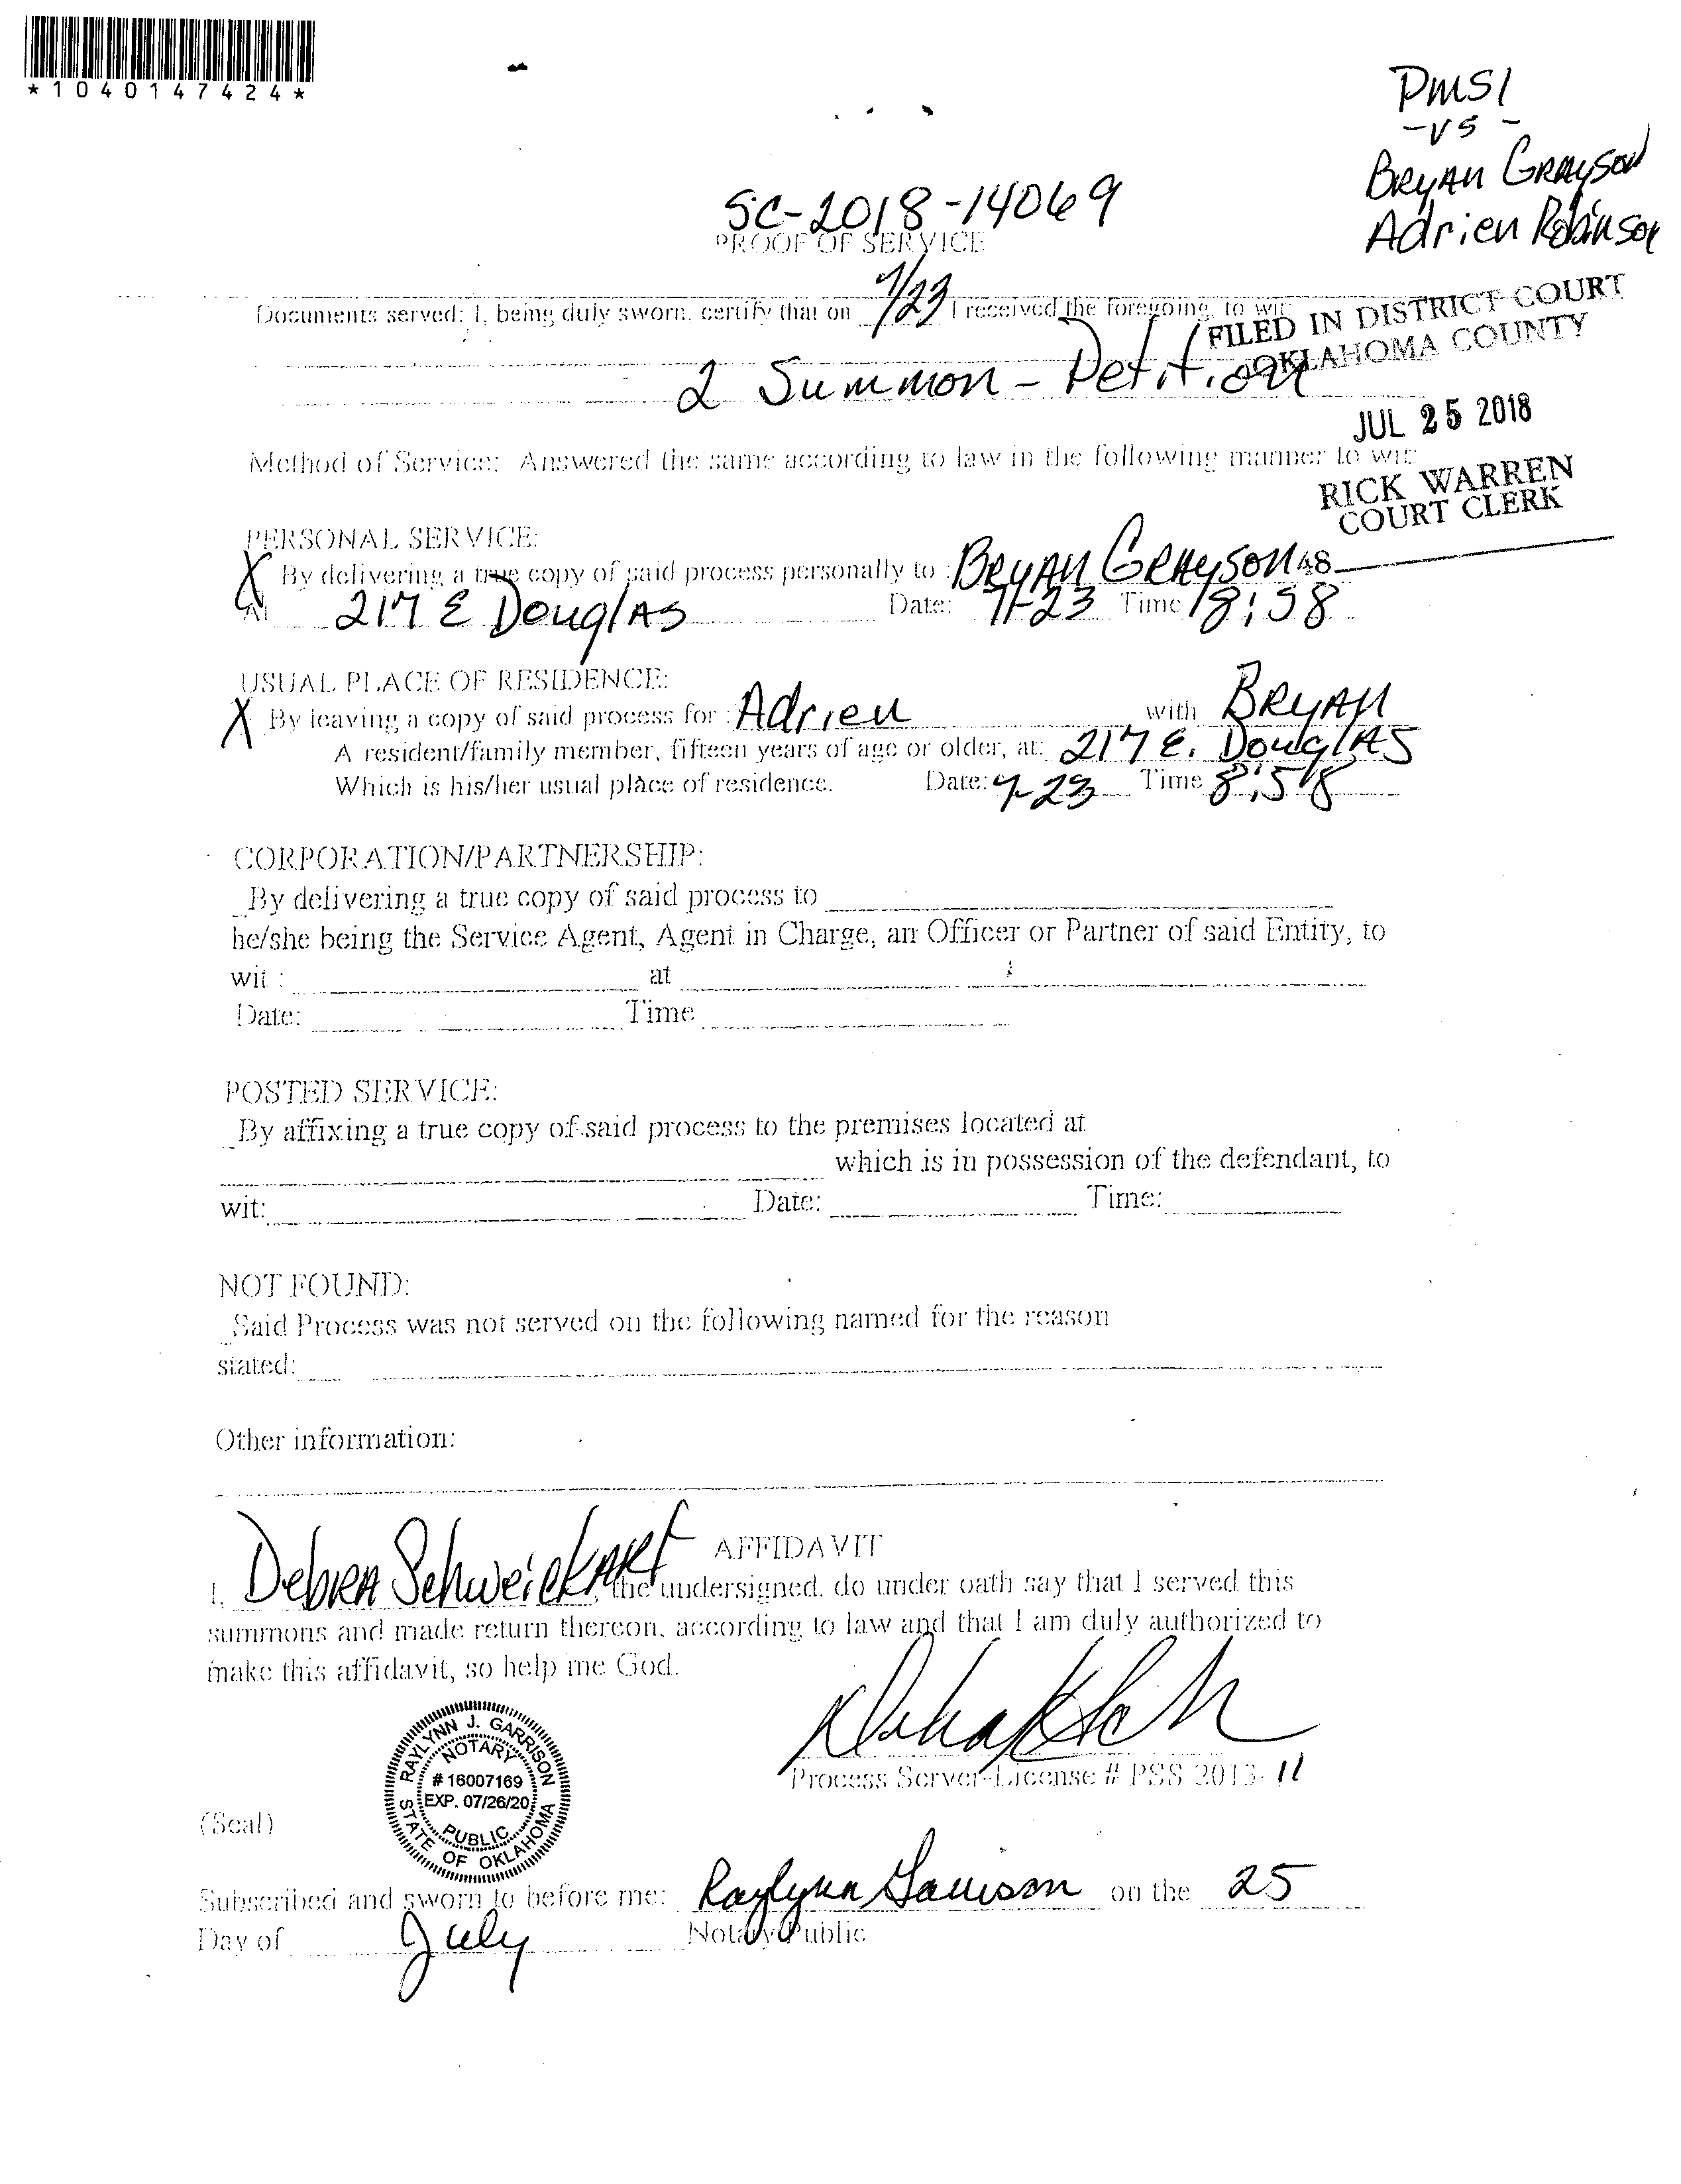 *1040147424*
PMSI
-VS-
BRYAN GRAYSON
Adrien Robinson
SC-2018-14069
PROOF OF SERVICE
Documents served: I, being duly sworn, certify that on 7/23 I received the foregoing, to wit:
FILED IN DISTRICT COURT
OKLAHOMA COUNTY
2 Summon - Petition
JUL 25 2018
Method of Service: Answered the same according to law in the following manner to wit:
RICK WARREN
COURT CLERK
48
PERSONAL SERVICE:
X By delivering a true copy of said process personally to: BRYAN GRAYSON
At 217 E DouglAS Date: 7-23 Time 8:58
USUAL PLACE OF RESIDENCE:
X By leaving a copy of said process for: Adrien with BRYAN
A resident/family member, fifteen years of age or older, at: 217 E. DouglAS
Which is his/her usual place of residence. Date: 7-23 Time 8:58
CORPORATION/PARTNERSHIP:
_By delivering a true copy of said process to
he/she being the Service Agent, Agent in Charge, an Officer or Partner of said Entity, to
wit : at
Date: Time
POSTED SERVICE:
_By affixing a true copy of said process to the premises located at
which is in possession of the defendant, to
wit: Date: Time:
NOT FOUND:
_Said Process was not served on the following named for the reason
stated:
Other information:
AFFIDAVIT
I, DebRA SchweickART, the undersigned, do under oath say that I served this
summons and made return thereon, according to law and that I am duly authorized to
make this affidavit, so help me God.
Process Server-License # PSS 2013- 11
RAYLYNN J. GARRISON
NOTARY
# 16007169
EXP. 07/26/20
PUBLIC
STATE OF OKLAHOMA
(Seal)
Subscribed and sworn to before me: Raylynn Garrison on the 25
Day of July Notary Public